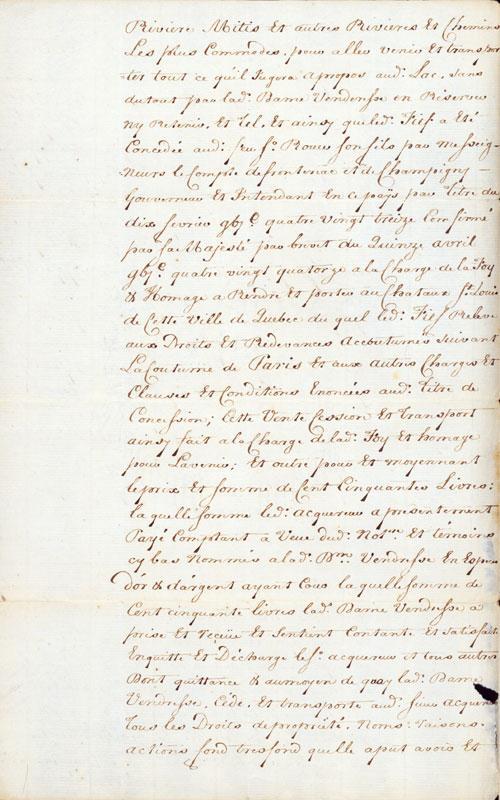 Riviere Mitis Et autres Rivieres Et Chemins
Les plus Commodes, pour aller venir Et transpor
ter tout ce quil Jugera apropos aud: Lac, sans
dutout par lad: Dame Venderesse en Réserver
ny Retenir, Et tel, Et ainsy que led: Fief a Eté
Concédée aud: feu Sr. Rouer son fils par messeig
neurs le Compte defrontenac et de Champigny
Gouverneur Et Intendant En ce païs par Titre du
dix fevrier gbjc. quatre vingt treize Confirmé
par sa Majesté par brevet du Quinze avril
gbjc. quatre vingt quatorze a la Charge de la Foy
& Homage a Rendre Et porter au Chataux St. Louis
de Cette Ville de Quebec du quel led: Fief Releve
aux Droits Et Redevances Accoutumés suivant
La Coutume de Paris Et aux autres Charges Et
Clauses Et Conditions Enoncées aud: Titre de
Concession; Cette Vente Cession Et transport
ainsy fait a la Charge de lad: Foy Et homage
pour Lavenir; Et outre pour Et moyennant
le prix Et somme de Cent Cinquantes Livres:
la quelle somme led: acquereur a présentement
Payé Comptant à Veue dud: Notre. Et témoins
cy bas Nommés a lad: Dme. Vendresse En Espece
Dór & dárgent ayant Cours la quelle somme de
Cent cinquante livres lad: Dame Vendresse a
prise Et reçüe Et sentient Contante Et satisfaite
Enquitte Et Décharge le Sr. acquereur et tous autres
Dont quittance & aumoyen de quoy lad: Dame
Vendresse, Céde, Et transporte aud: sieur acquereur
tous les Droits de propriété, Noms, raisons,
actions fond tresfond quelle aput avoir Et